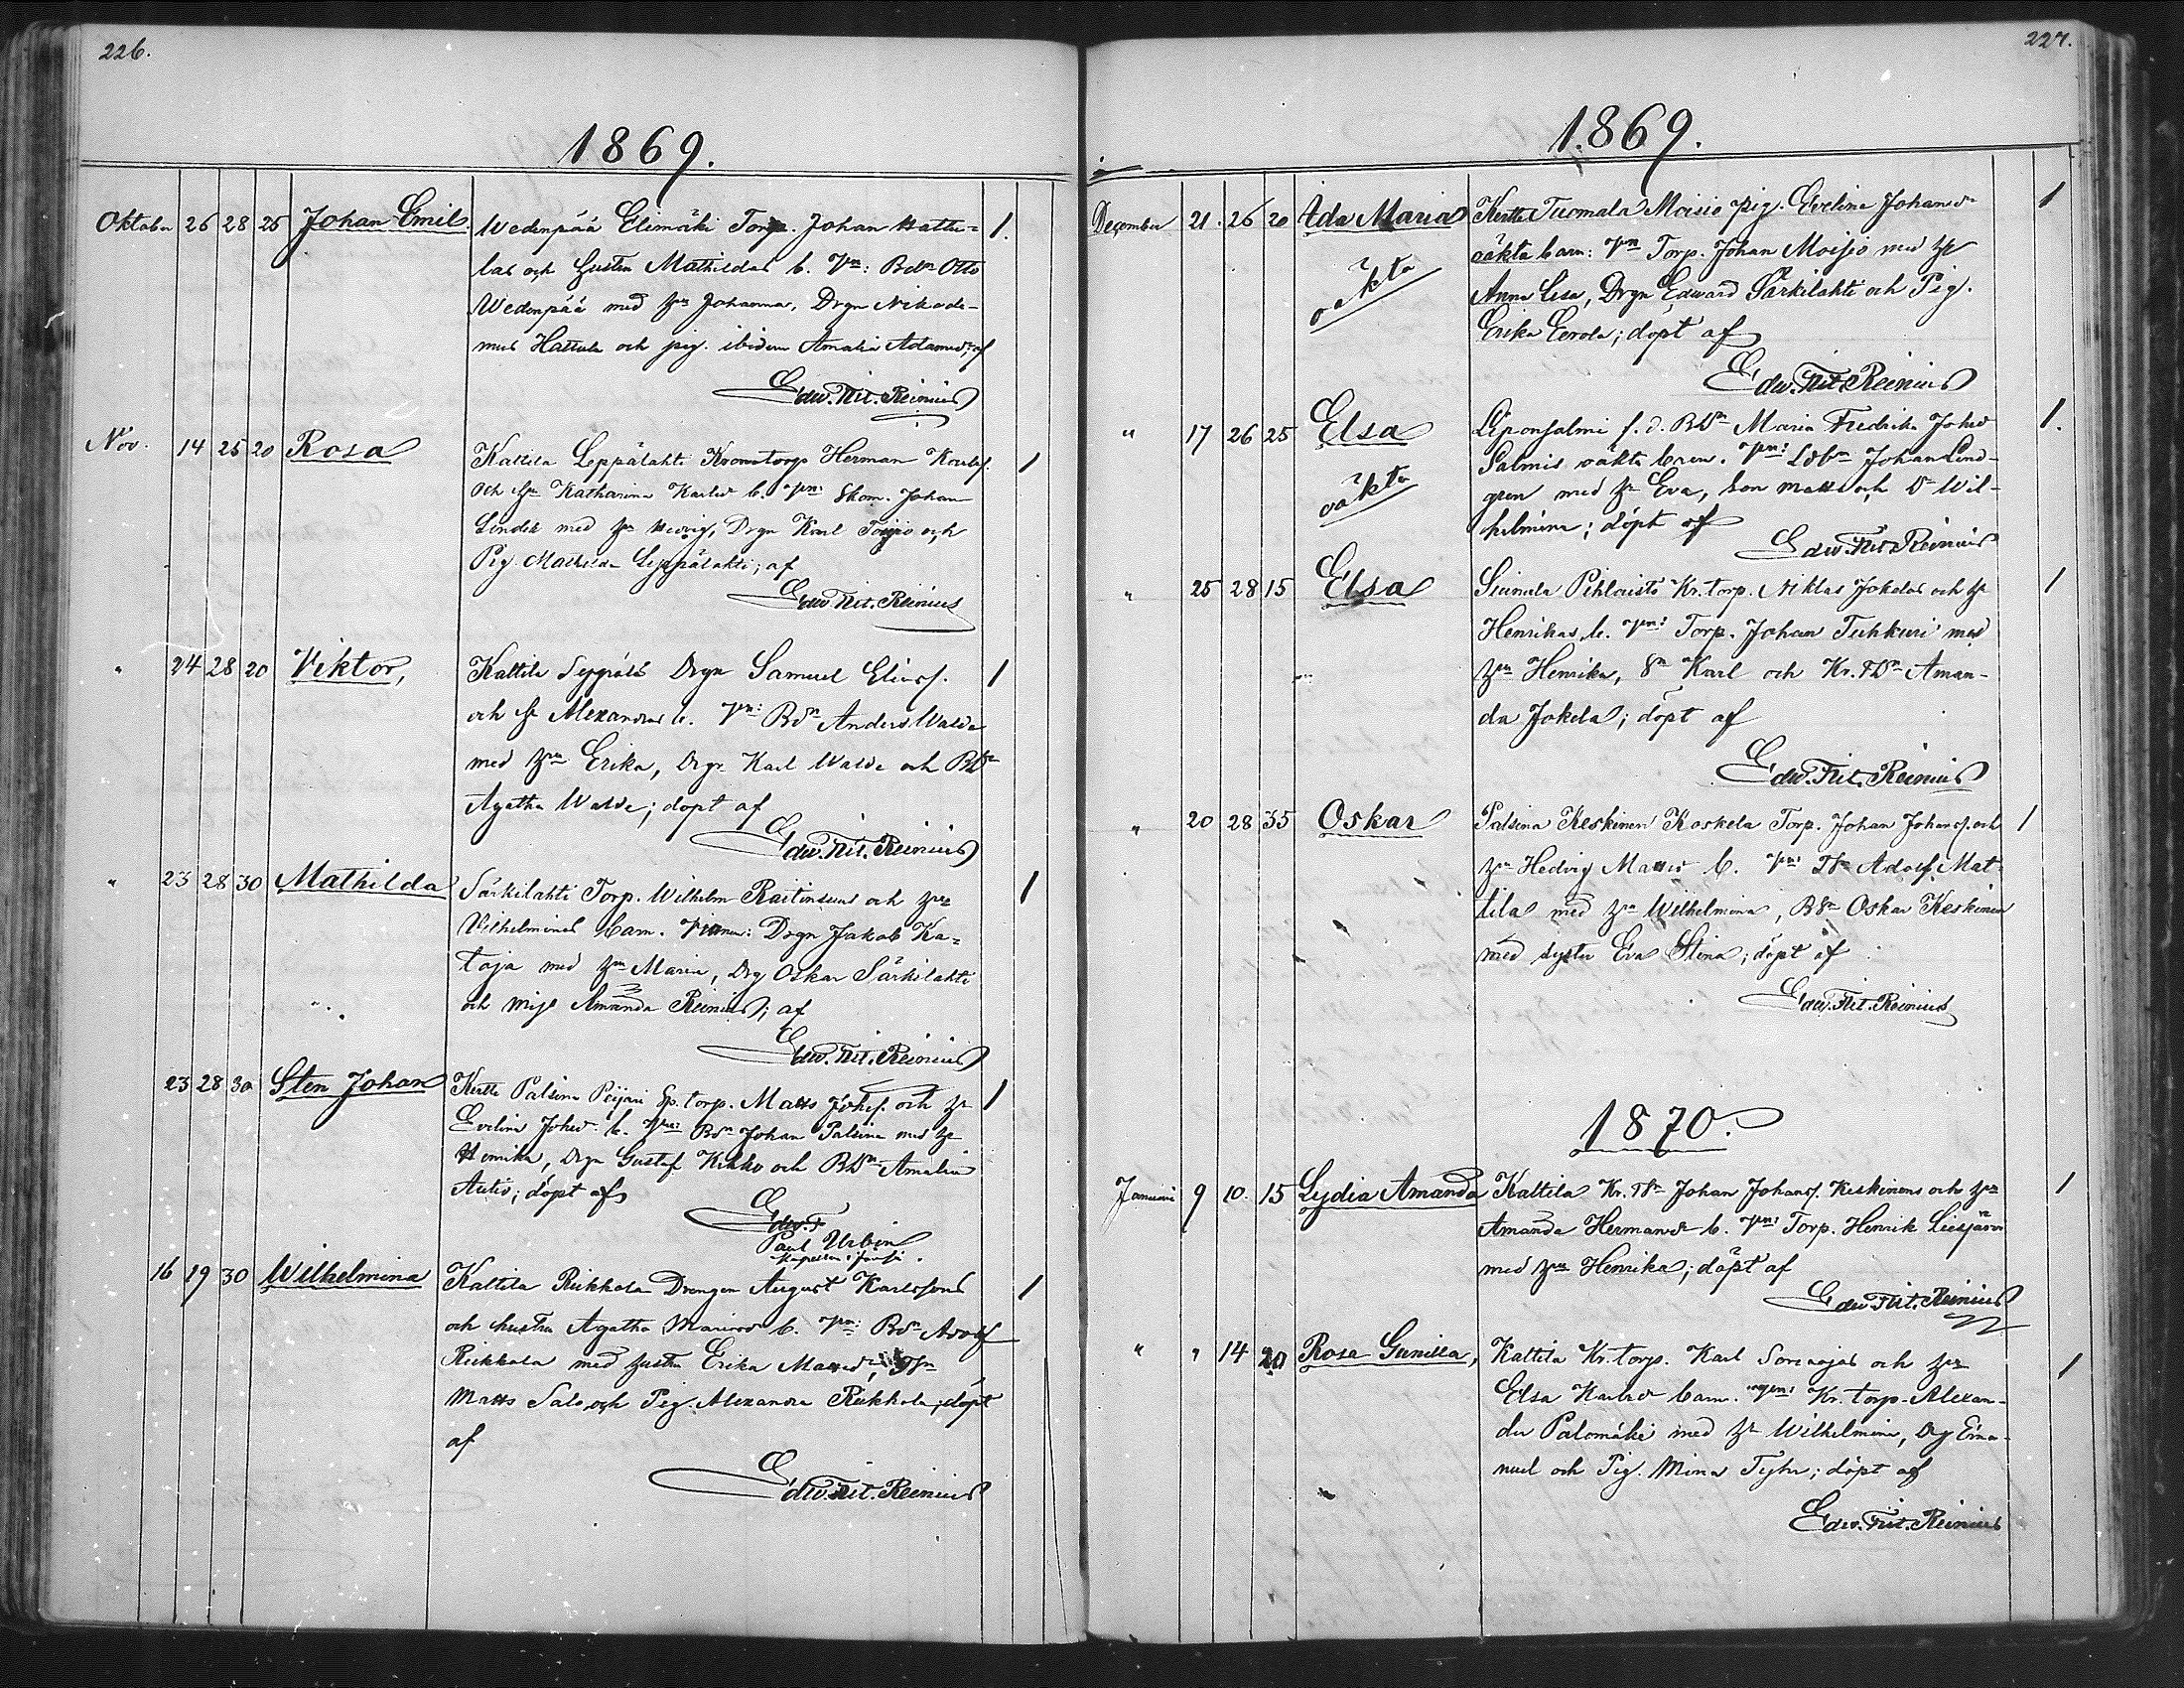 226.
1869.
Oktober 26 28 25 Johan Emil. Wedenpää Elimäki Torp. Johan Hattu- 1.
las och Hustru Mathildas b. Vn: Bdn Otto
Wedenpää med Hu Johanna, Drgn Nikode-
mus Hattula och pig. ibidem Amalia Adamsdr; af
Edw. Frit. Reinius
Nov. 14 25 20 Rosa Kattila Leppälahti Kronotorp Herman Karlsf. 1
och Hu Katharina Karlsdr b. Vn: Skom. Johan
Linder med Hu Hedvig, Drgn Karl Toijio och
Pig. Mathilda Leppälahti; af
Edw. Frit. Reinius
" 24 28 20 Viktor, Kattila Seppälä Drgn Samuel Eliasf. 1
och Hu Alexandras b. Vn: Bdn Anders Walde
med Hu Erika, Drgn Karl Walde och BDr
Agatha Walde; döpt af
Edw. Frit. Reinius
" 23 28 30 Mathilda Särkilahti Torp. Wilhelm Raitinens och Hu 1
Vilhelminas barn. Vittnen: Drgn Jakob Ka-
taja med Hu Maria, Drg Oskar Särkilahti
och Mll Amanda Reinius; af
Edw. Frit. Reinius
23 28 30 Sten Johan Kertte Palsina Peijari Sp. torp. Matts Johsf. och Hu 1
Evelina Johsdr b. Vn: Bdn Johan Palsina med Hu
Henrika, Drgn Gustaf Kikko och BDr Amalia
Autio; döpt af
Edw. F
Paul Urbin
Kapellan i Jämsä.
16 19 30 Wilhelmina Kattila Rekkola Drengen August Karlssons 1
och hustru Agatha b. Vn: Bdn Adolf
Rekkola med hustru Erika Mattsdr,
Matts Salo och Pig. Alexandra Rekkola; döpt
af
Edw. Frit. Reinius
227.
1869.
December 21. 26 20 Ida Maria Kertte Tuomala Moisio pig. Evelina Johansdr 1
oäkta
oäkta barn: Vn Torp. Johan Moisio med Hu
Anna Lisa, Drgn Edward Särkilahti och Pig.
Erika Eerola; döpt af
Edw. Frit. Reinius
" 17 26 25 Elsa f. d. BDr Maria Fredrika Johsdr 1.
oäkta
Salmis oäkta barn. Vn: Johan Lind-
gren med Hu Eva, Son Matts och Dr Wil-
helmina; döpt af
Edw. Frit. Reinius
" 25 28 15 Elsa Pihlaisto Kr. torp. Niklas Jokelas och Hu 1
Henrikas b. Vn: Torp. Johan Tuhkuri med
Hu Henrika, Sn Karl och Kr. TDr Aman-
da Jokela; döpt af
Edw. Frit. Reinius
" 20 28 35 Oskar Palsina Keskinen Koskela Torp. Johan Johansf. och 1
Hu Hedvig Mattsdr b. Vn: Adolf Mat-
tila med Hu Wilhelmina, BSn Oskar Keskinen
med syster Eva Stina; döpt af
Edw. Frit. Reinius
1870.
Januari 9 10. 15 Lydia Amanda Kattila Kr. Johan Johansf. Keskinens och Hu 1
Amanda Hermansdr b. Vn: Torp. Henrik Liesjärvi
med Hu Henrika; döpt af
Edw. Frit. Reinius
" " 14 20 Rosa Gunilla, Kattila Kr. torp. Karl Sorasojas och Hu 1
Elsa Karlsdr barn. Vn: Kr. torp. Alexan-
der Palomäki med Hu Wilhelmina, Drg Ema-
nuel och Pig. Mina Tyhn; döpt af
Edw. Frit. Reinius